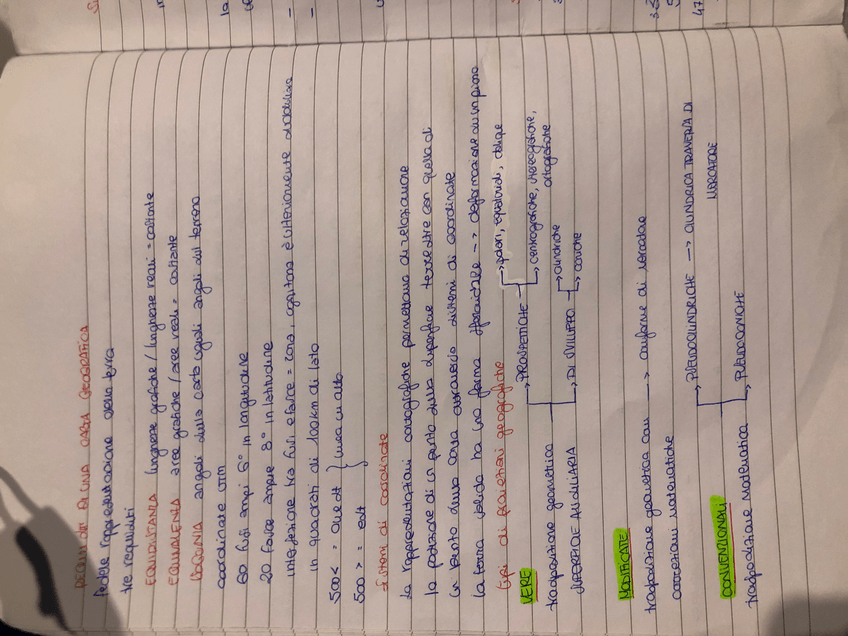 REQUISITI DI UNA CARTA GEOGRAFICA
fedele rappresentazione della terra
tre requisiti
EQUIDISTANZA lunghezze grafiche / lunghezze reali = costante
EQUIVALENZA aree grafiche / aree reali = costante
ISOGONIA angoli sulla carta uguali angoli sul terreno
coordinate UTM
60 fusi ampi 6° in longitudine
20 fasce ampie 8° in latitudine
intersezione tra fusi e fasce = zona, ognuna è ulteriormente suddivisa
in quadrati di 100km di lato
500 < = ovest } linea in alto
500 > = est
sistemi di coordinate
le rappresentazioni cartografiche permettono di relazionare
la posizione di un punto sulla superficie terrestre con quella di
un punto sulla carta attraverso sistemi di coordinate
la terra solida ha una forma sferoidale → deformazione su un piano
tipi di proiezioni geografiche
VERE → PROSPETTICHE → polari, equatoriali, oblique
→ centrografiche, stereografiche, ortografiche
trasposizione geometrica
SUPERFICIE AUSILIARIA → DI SVILUPPO → cilindriche
→ coniche
MODIFICATE
trasposizione geometrica con → conforme di mercatore
correzioni matematiche
CONVENZIONALI → PSEUDOCILINDRICHE → CILINDRICA TRAVERSA DI MERCATORE
trasposizione matematica → PSEUDOCONICHE